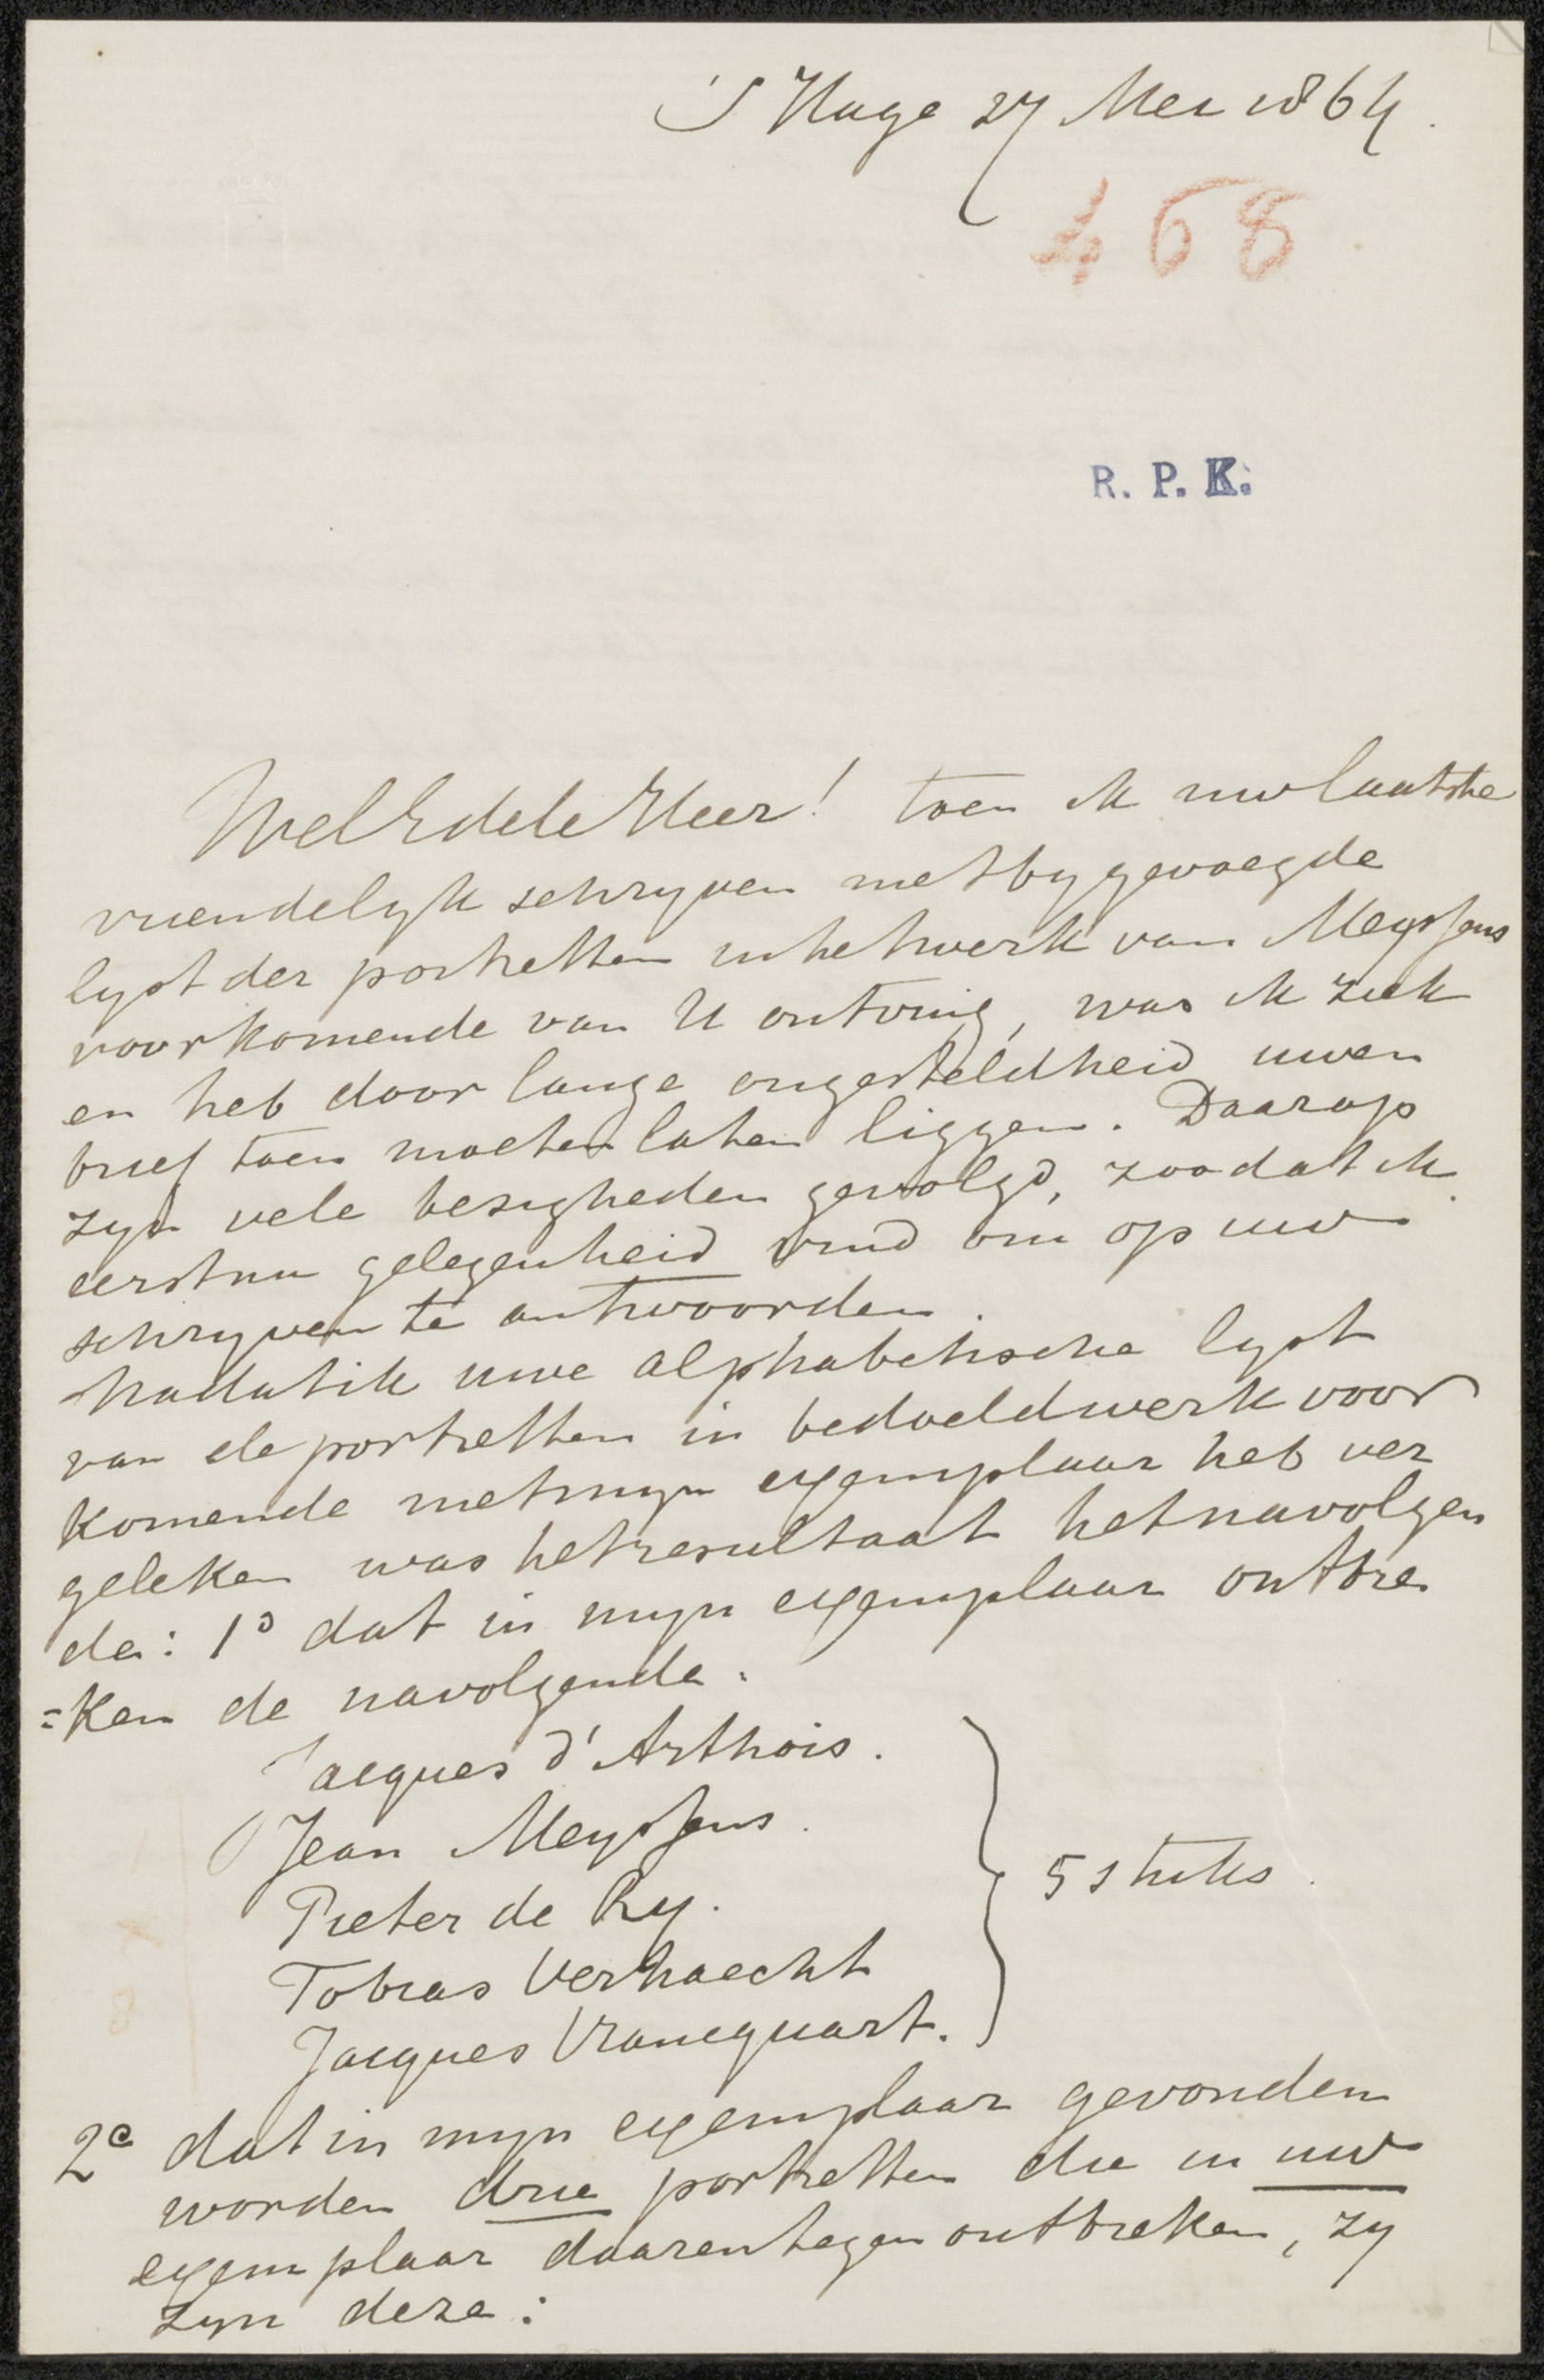 'S Hage 27 Mei 1864.
468
R. P. K.
WelEdele Heer! toen ik uw laatste
vriendelyk schryven met bygevoegde
lyst der portretten in het werk van Meyssens
voorkomende van U ontving, was ik ziek
en heb door lange ongesteldheid uwen
brief toen moeten laten liggen. Daarop
zyn vele bezigheden gevolgd, zoodat ik
eerst nu gelegenheid vind om op uw
schryven te antwoorden.
Nadat ik uwe alphabetische lyst
van de portretten in bedoeld werk voor
komende met myn exemplaar heb ver
geleken was het resultaat het navolgen
de: 1o dat in myn exemplaar ontbre
=ken de navolgende.
Jacques d'Arthois.
Jean Meyssens.
Pieter de Ry.
Tobias Verhaecht
Jacques Vrancquart.
5 stuks.
2e dat in myn exemplaar gevonden
worden drie portretten die in uw
exemplaar daarentegen ontbreken, zy
zyn deze: